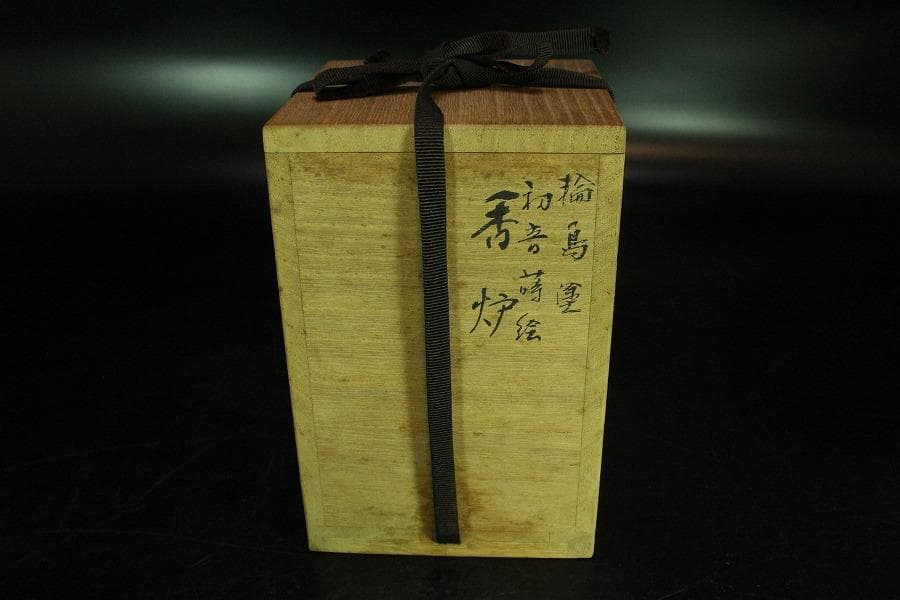 輪島塗
初音蒔絵
香炉